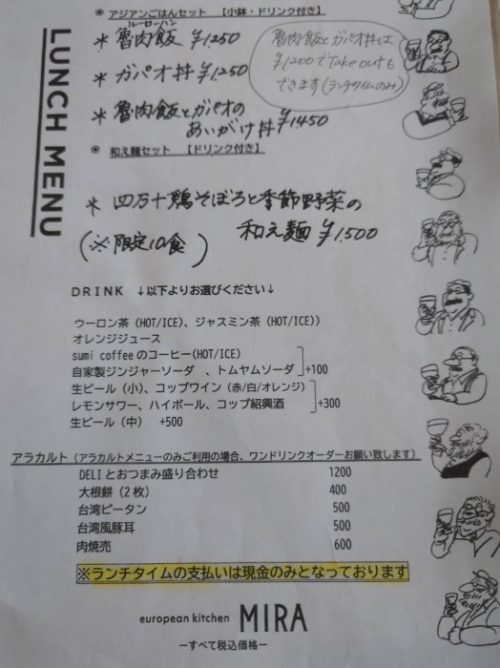 LUNCH MENU
◉ アジアンごはんセット 【小鉢・ドリンク付き】
ルーローハン
* 魯肉飯 ¥1250
* ガパオ丼 ¥1250
魯肉飯とガパオ丼は
¥1200でTake outも
できます(ランチタイムのみ)
* 魯肉飯とガパオの
あいがけ丼 ¥1450
◉ 和え麺セット 【ドリンク付き】
* 四万十鶏そぼろと季節野菜の
和え麺 ¥1,500
(※限定10食)
DRINK ↓以下よりお選びください↓
ウーロン茶 (HOT/ICE)、ジャスミン茶 (HOT/ICE))
オレンジジュース
sumi coffee のコーヒー(HOT/ICE)
自家製ジンジャーソーダ 、トムヤムソーダ +100
生ビール (小)、コップワイン (赤/白/オレンジ)
レモンサワー、ハイボール、コップ紹興酒 +300
生ビール (中) +500
アラカルト (アラカルトメニューのみご利用の場合、ワンドリンクオーダーお願い致します)
DELI とおつまみ盛り合わせ 1200
大根餅 (2枚) 400
台湾ピータン 500
台湾風豚耳 500
肉焼売 600
※ランチタイムの支払いは現金のみとなっております
european kitchen MIRA
ーすべて税込価格ー